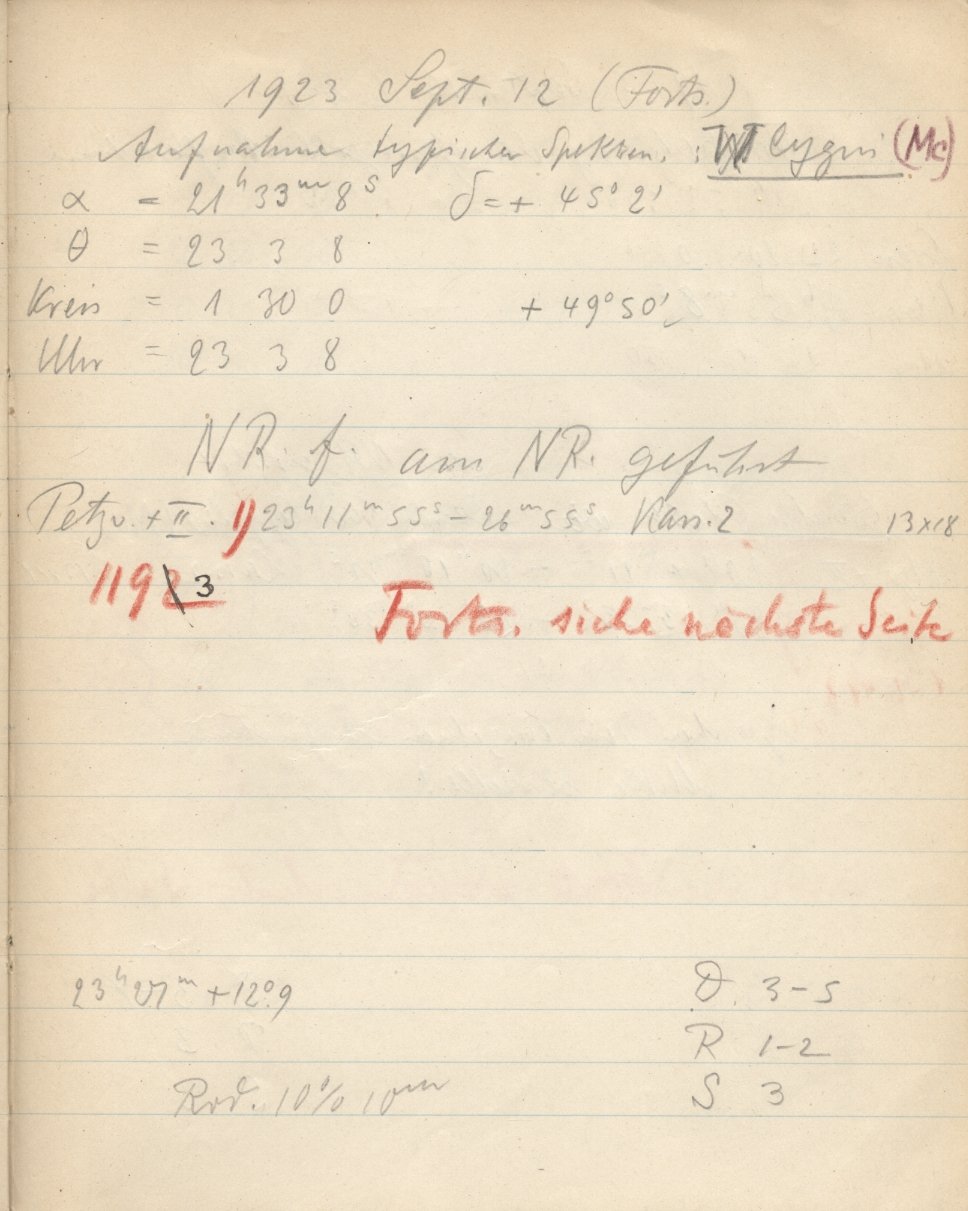 1923 Sept. 12 (Forts.)
Aufnahme typischer Spektren. : W Cygni (Mc)
α = 21ʰ 33ᵐ 8ˢ δ = + 45° 2'
θ = 23 3 8
Kreis = 1 30 0 + 49° 50'
Uhr = 23 3 8
NR. f. am NR. geführt
Petzv. + II. 1) 23ʰ 11ᵐ 55ˢ – 26ᵐ 55ˢ Kass. 2 13x18
1193
Forts. siehe nächste Seite
23ʰ 27ᵐ + 12°.9 D. 3-5
R 1-2
Rod. 10% 10ᵐ S 3